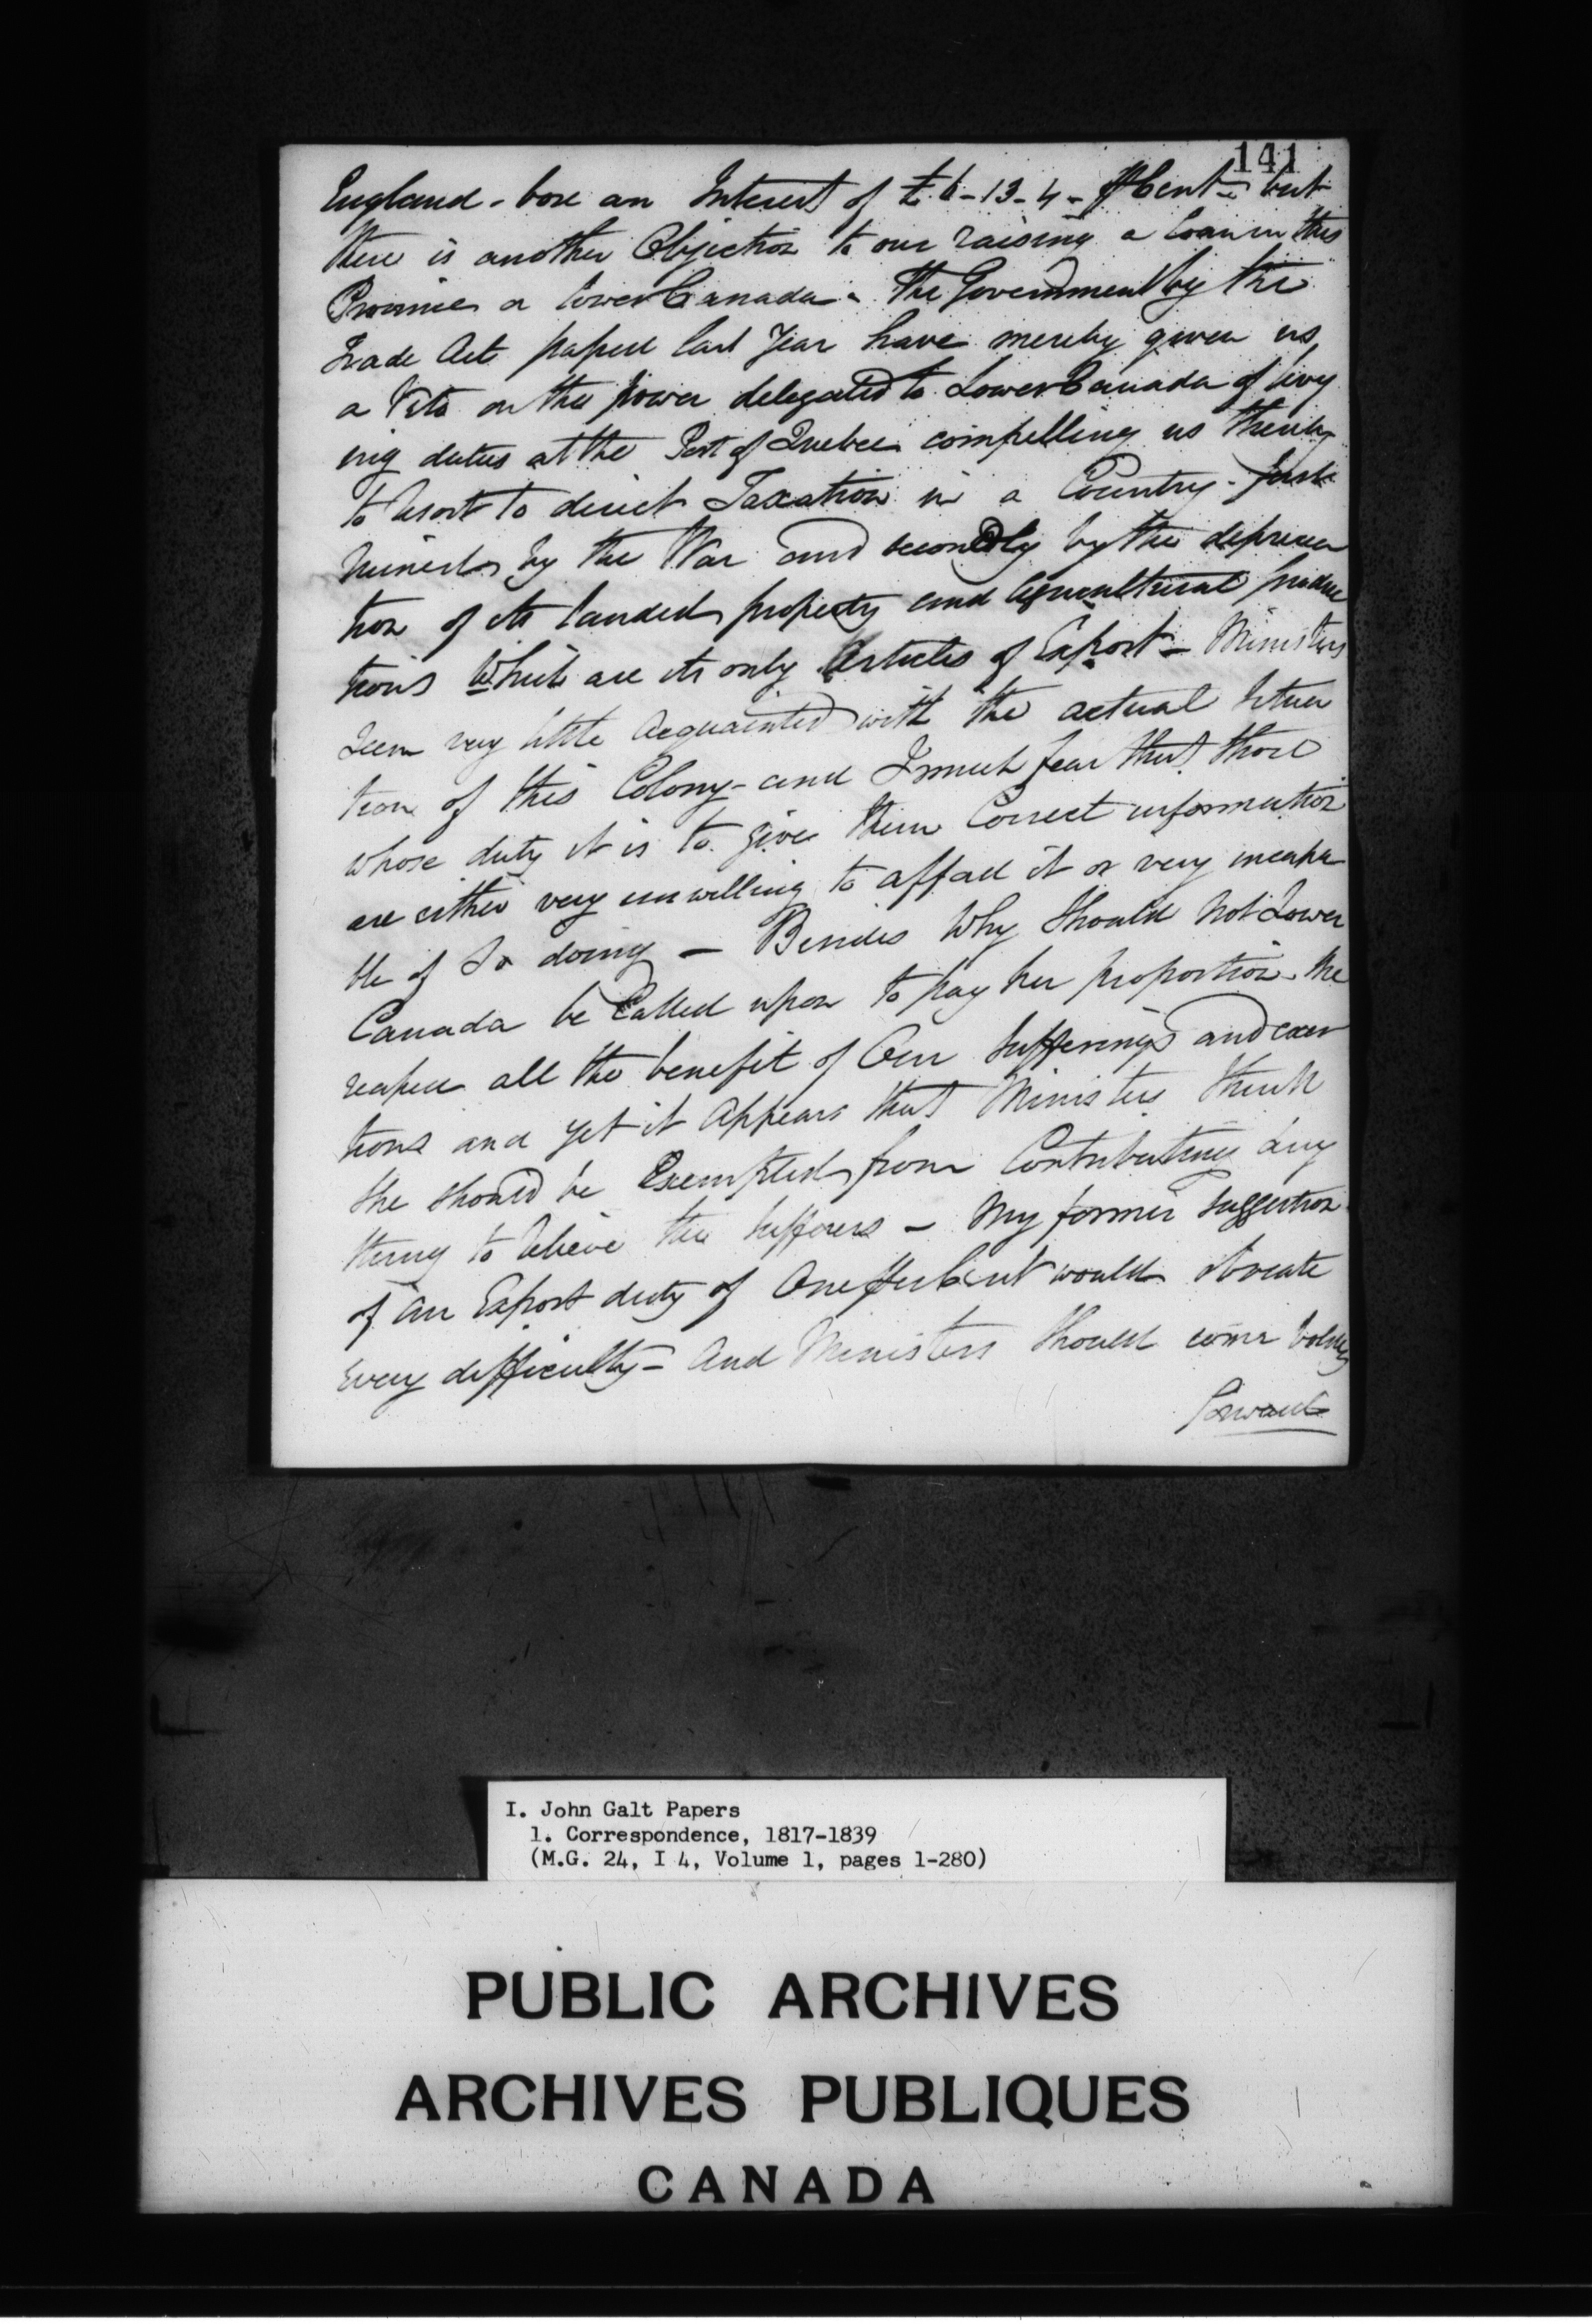 141
England - bore an Interest of £6-13-4- ⅌ Cent - but
there is another Objection to our raising a Loan in this
Province or Lower Canada - The Government by the
Trade Act passed last Year have merely given us
a Veto on the power delegated to Lower Canada of levy
ing duties at the Port of Quebec compelling us thereby
to resort to direct Taxation in a Country - first
ruined by the War and secondly by the deprecia
tion of its landed property and Agricultural produc
tions which are its only Articles of Export - Ministers
seem very little acquainted with the actual situa
tion of this Colony - and I much fear that those
whose duty it is to give them Correct information
are either very unwilling to afford it or very incapa
ble of so doing - Besides Why should not Lower
Canada be Called upon to pay her proportion. She
reaped all the benefit of Our sufferings and exer
tions and yet it appears that Ministers think
she should be Exempted from Contributing any
thing to relieve the sufferers - My former suggestion
of an Export duty of One per Cent would obviate
every difficulty - And Ministers should come boldly
forward
I. John Galt Papers
1. Correspondence, 1817-1839
(M.G. 24, I 4, Volume 1, pages 1-280)
PUBLIC ARCHIVES
ARCHIVES PUBLIQUES
CANADA